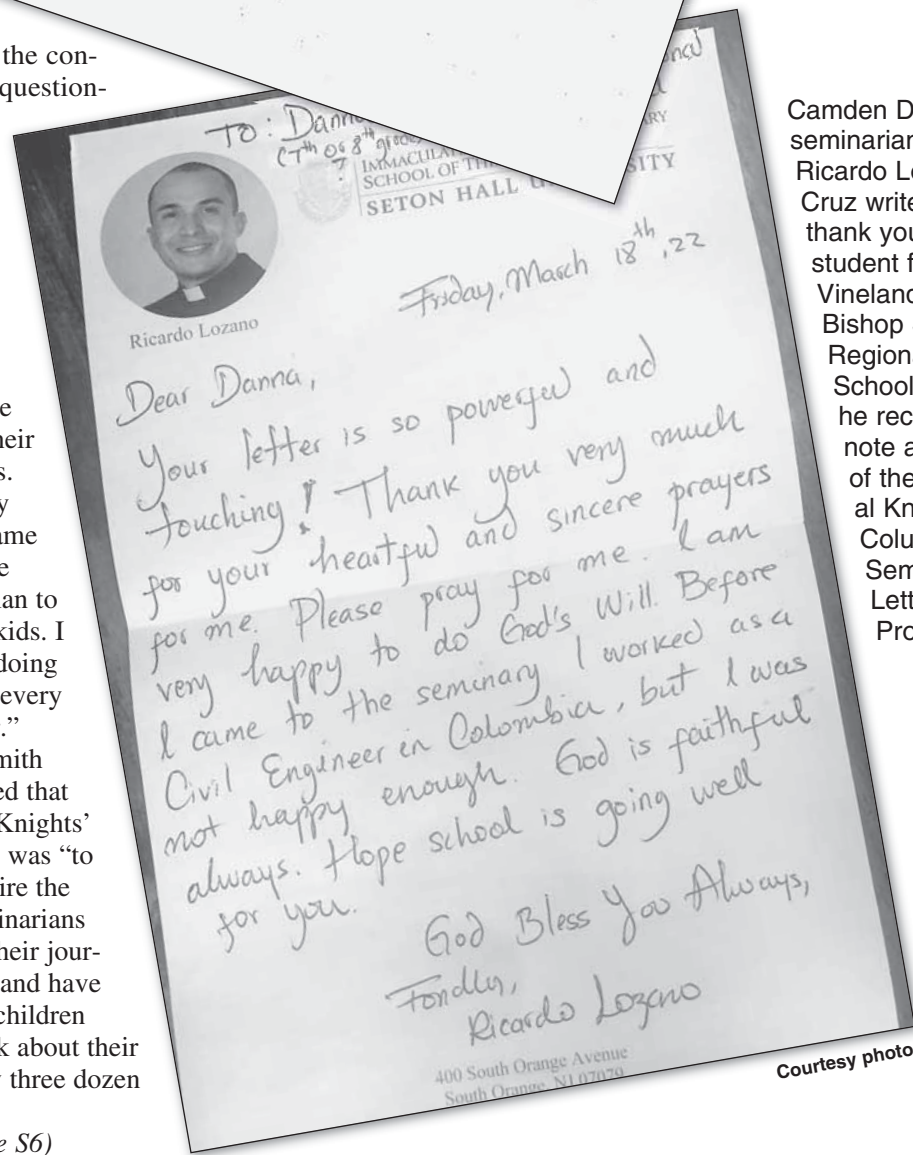 the con-
question-
e
heir
s.
y
ame
e
an to
kids. I
doing
every
.”
mith
ed that
Knights’
was “to
ire the
inarians
heir jour-
and have
children
k about their
y three dozen
e S6)
To: Danna
(7th or 8th grade
?
IMMACULA
SCHOOL OF TH
SETON HALL U SITY
ARY
Ricardo Lozano
Friday, March 18th, 22
Dear Danna,
Your letter is so powerful and
touching! Thank you very much
for your heartful and sincere prayers
for me. Please pray for me. I am
very happy to do God's Will. Before
I came to the seminary I worked as a
Civil Engineer in Colombia, but I was
not happy enough. God is faithful
always. Hope school is going well
for you.
God Bless You Always,
Fondly,
Ricardo Lozano
400 South Orange Avenue
South Orange, NJ 07079
Courtesy photo
Camden D
seminarian
Ricardo Lo
Cruz write
thank you
student f
Vineland
Bishop
Region
School
he rec
note a
of the
al Kn
Colu
Sem
Lett
Pro